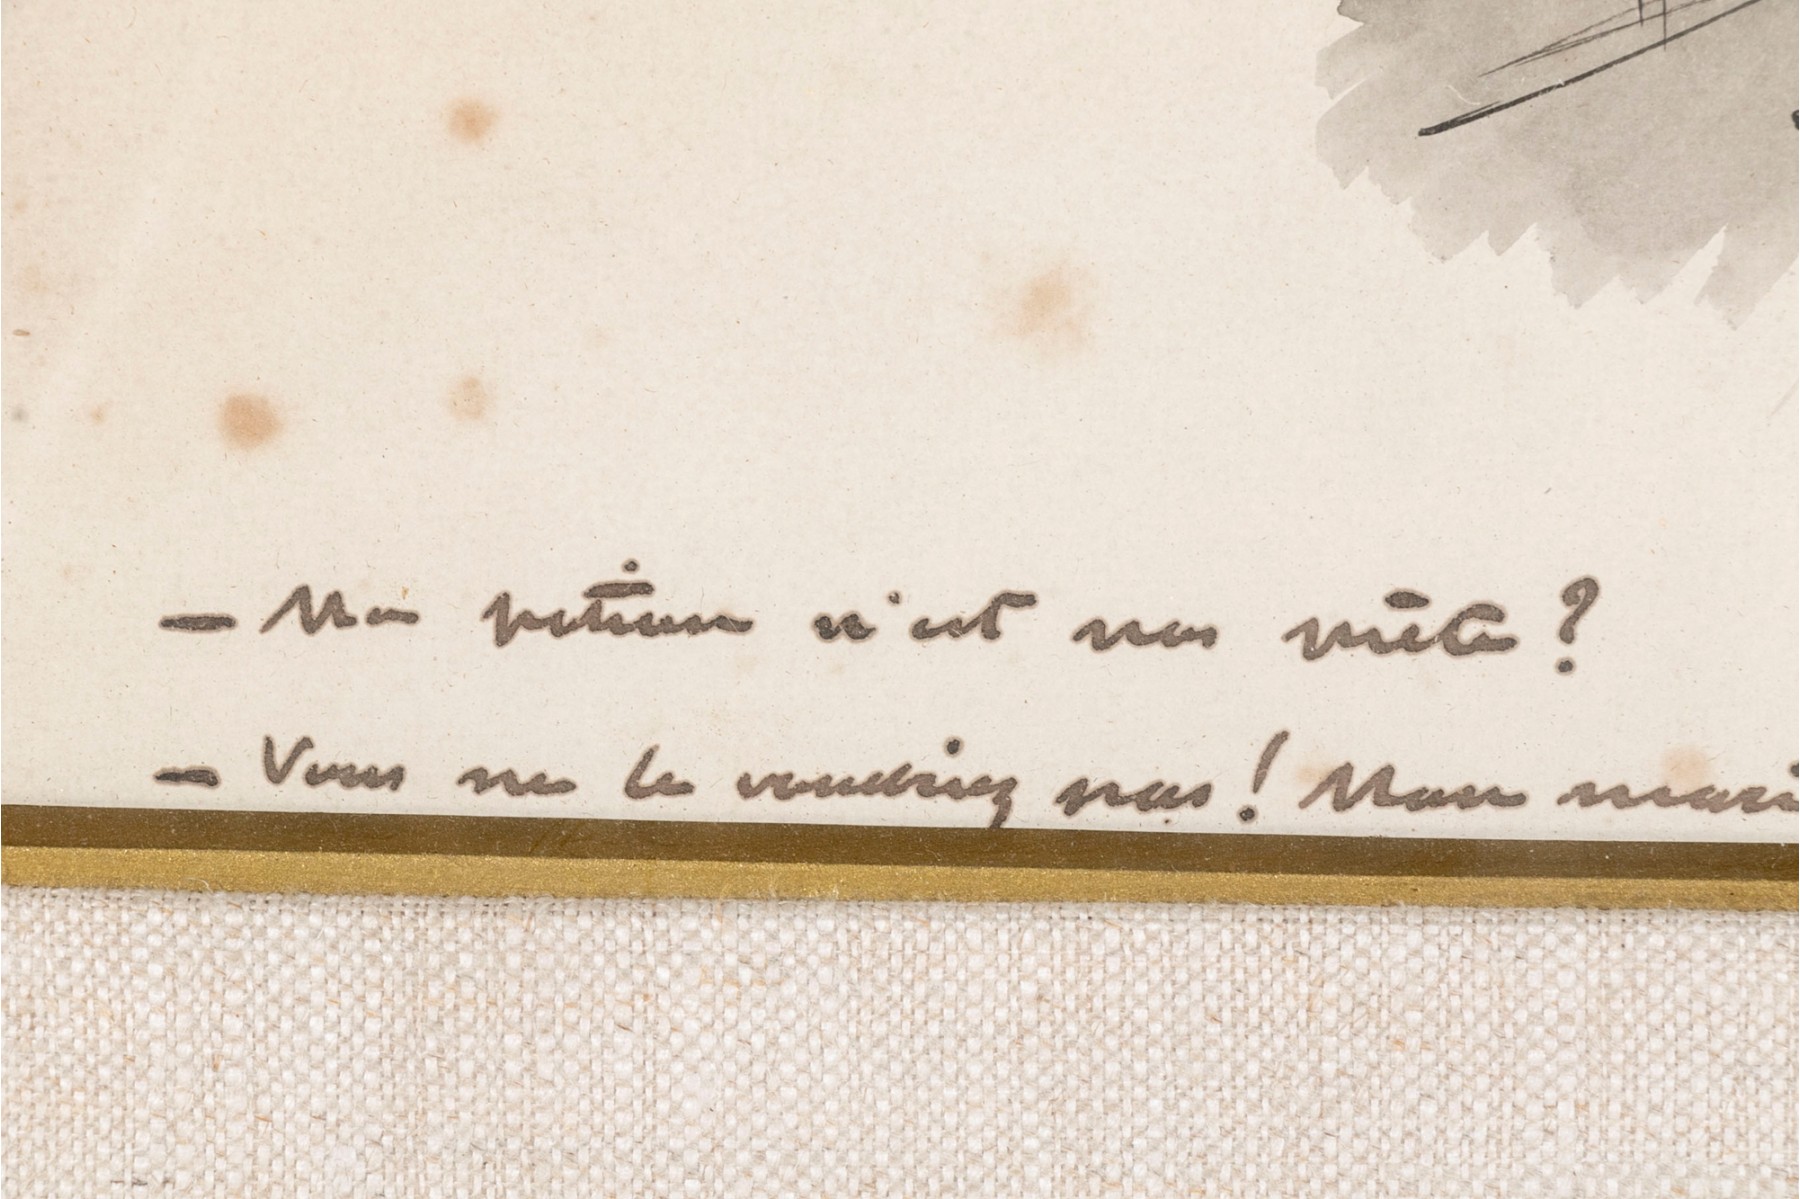 - Ma potion n'est pas prête ?
- Vous ne le voudriez pas ! Mon mari